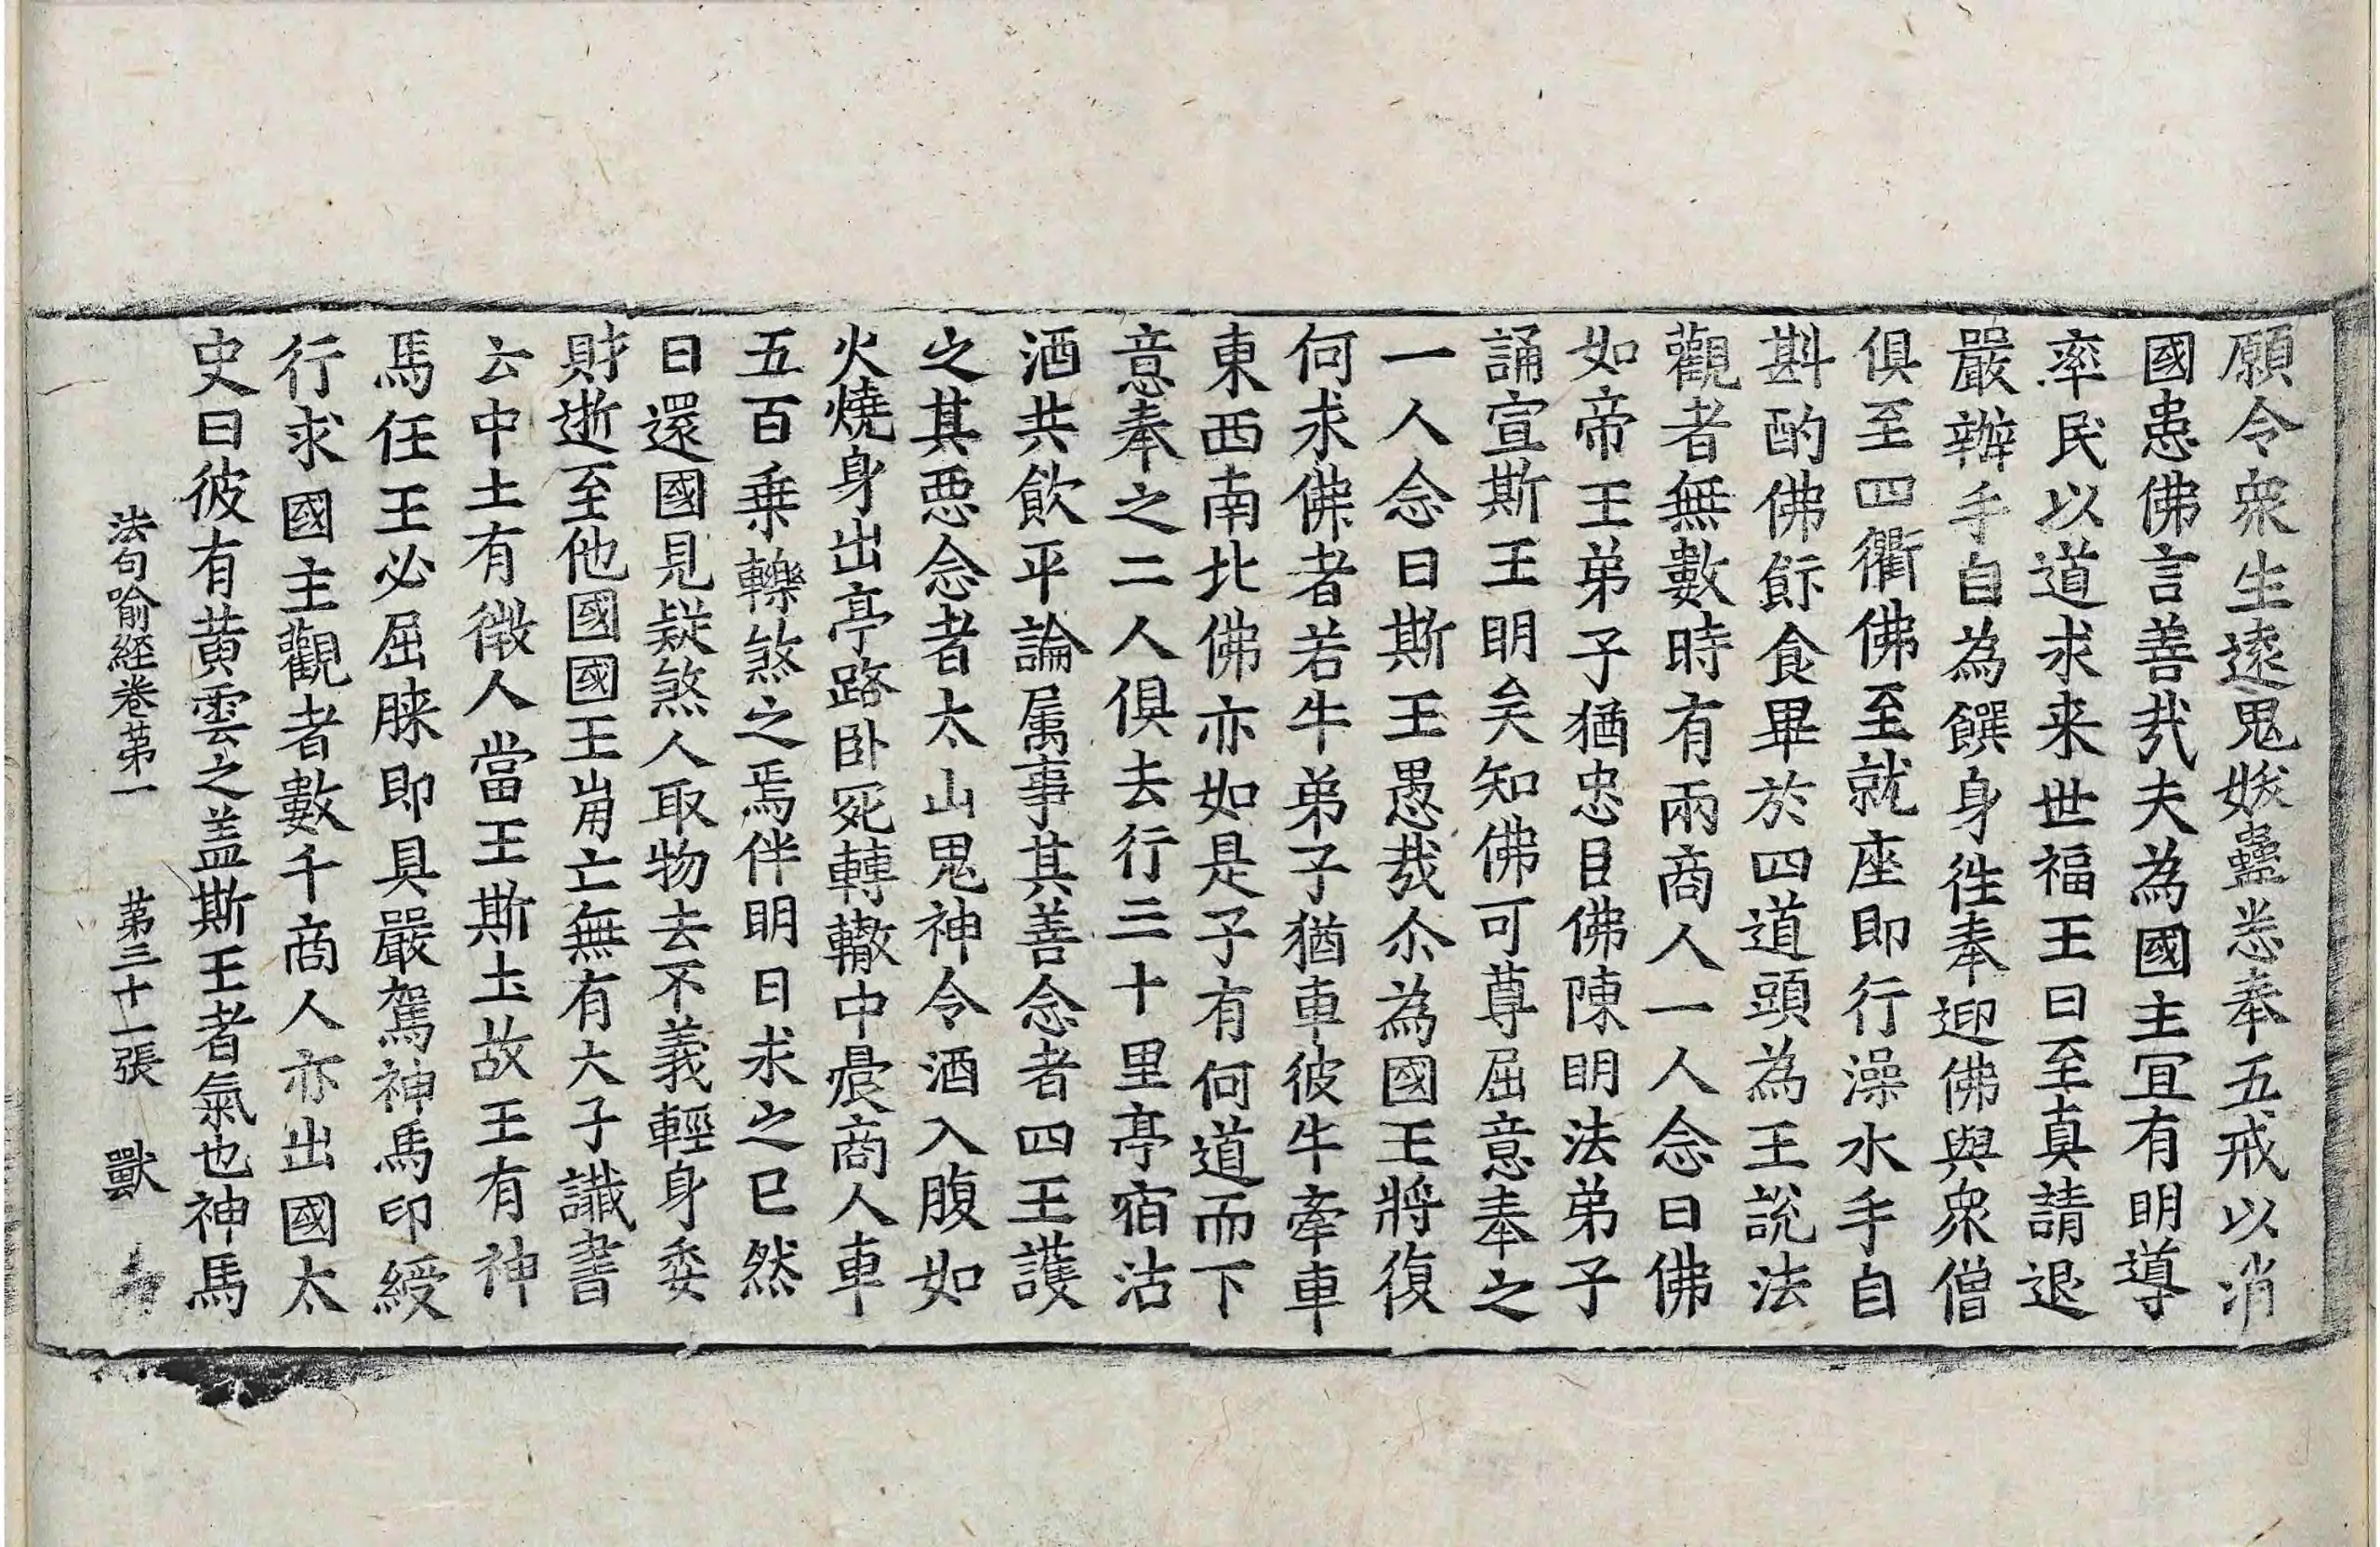 願令衆生逺鬼妭蠱悉奉五戒以消
國患佛言善㢤夫為國主宜有明導
率民以道求来世福王曰至真請退
嚴辦手自為饌身徃奉迎佛與衆僧
俱至四衢佛至就座即行澡水手自
斟酌佛飯食畢於四道頭為王說法
觀者無數時有兩商人一人念曰佛
如帝王弟子猶忠臣佛陳明法弟子
誦宣斯王明矣知佛可尊屈意奉之
一人念曰斯王愚㢤尒為國王將復
何求佛者若牛弟子猶車彼牛牽車
東西南北佛亦如是子有何道而下
意奉之二人俱去行三十里亭宿沽
酒共飲平論属事其善念者四王護
之其悪念者太山鬼神令酒入腹如
火燒身出亭路卧死轉轍中晨商人車
五百乗轢煞之焉伴明日求之已然
曰還國見疑煞人取物去不義輕身委
財逝至他國國王崩亡無有大子讖書
云中土有微人當王斯土故王有神
馬任王必屈膝即具嚴駕神馬印綬
行求國主觀者數千商人亦出國太
史曰彼有黄雲之盖斯王者氣也神馬
法句喻経卷苐一　苐三十一張　獸